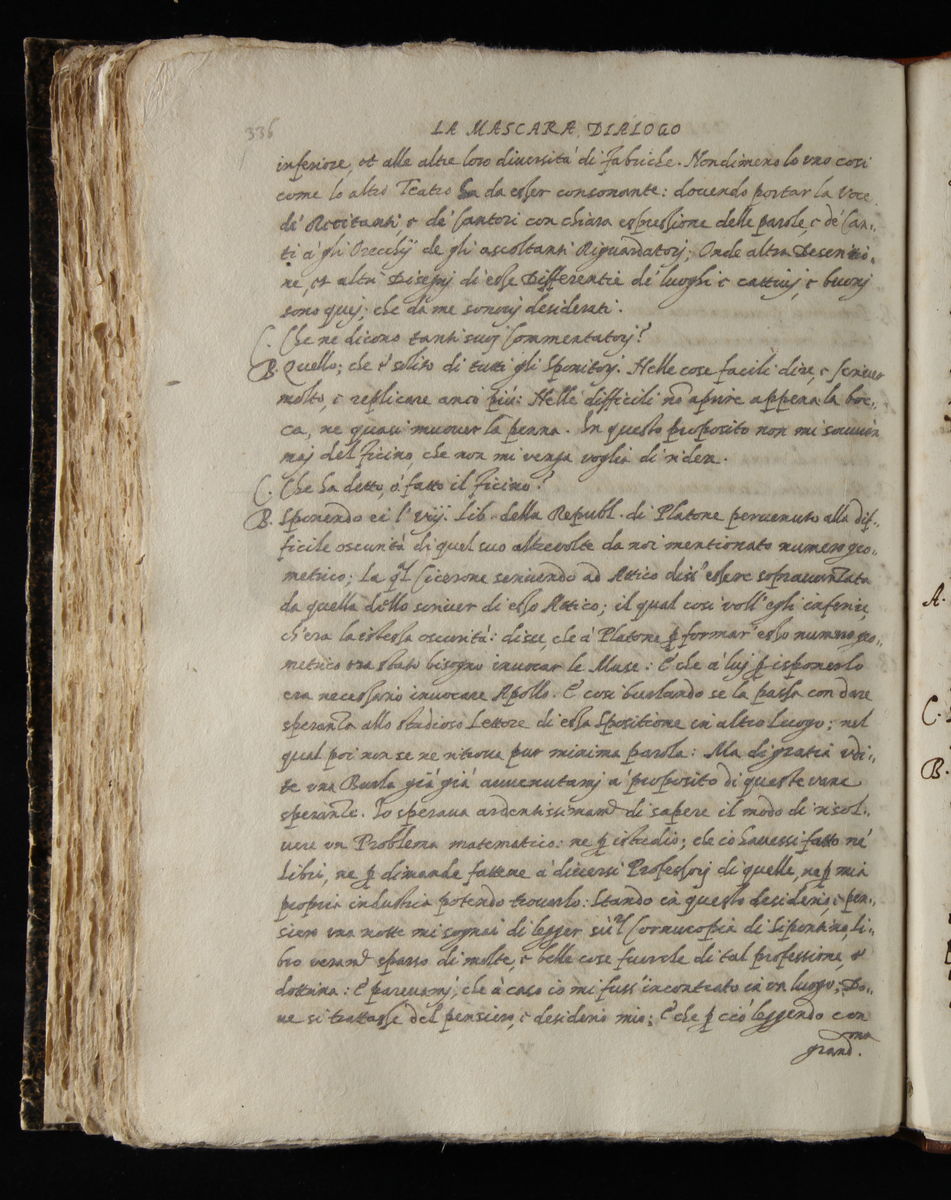 336
LA MASCARA, DIALOGO
inferiore, et alla altre loro diversità di fabriche. Nondimeno lo uno così
come lo altro Teatro ha da esser consonante: dovendo portar la Voce
di Recitanti, e de' Cantori con chiara espressione delle parole, e de' Can-
ti à gli Orecchij de gli ascoltanti Riguardatorj; Onde altra Descritio-
ne, et altri Disegnj di esse Differentie di luoghi e cattivj, e buonj
sono quej; che da me sononj desiderati.
C. Che ne dicono tanti suoj Commentatorj?
B. Quello; che è solito di tutti gli Spositorj. Nelle cose facili dire, e scriver
molto, e replicare anco più: Nelle difficili nō aprire appena la boc-
ca, ne quasi muover la penna. In questo proposito non mi souvien
maj del ficino, che non mi venga voglia di rider.
C. Che ha detto, ò fatto il ficino?
B. Sponendo ei l' viij. Lib. della Republ. di Platone pervenuto alla dif-
ficile oscurità di quel suo altrevolte da noi mentionato numero geo-
metrico; la ql Cicerone scrivendo ad Attico diss' essere sopravanzata
da quella dello scriver di esso Attico; il qual così voll' egli inferir,
ch'era la istessa oscurità: disse, che à Platone p formar' esso numero geo-
metrico era stato bisogno invocar le Muse: E che à luj p isponerlo
era necessario invocare Apollo. E così burlando se la passa con dare
speranza allo studioso Lettore di essa Spositione in altro luogo; nel
qual poi non se ne ritrova pur minima parola: Ma di gratia udi-
te una Burla già già avvenutamj à proposito di queste vane
speranze. Io sperava ardentissimam.e di sapere il modo di risol-
vere un Problema matematico: ne p istudio; che io havessi fatto ne'
Libri, ne p dimande fattene à diversi Professorj di quelle, ne p mia
propria industria potendo trovarlo: Stando in questo desiderio, e pen-
siero una notte mi sognai di legger su'l Cornucopia di Sipontino, li-
bro veram.e sparso di molte, e belle cose fuorche di tal professione, e
dottrina: E parevamj, che à caso io mi fuss' incontrato in un luogo; Do-
ve si trattasse del pensiero, e desiderio mio; E che p ciò leggendo con
grand.ma
A.
C.
B.